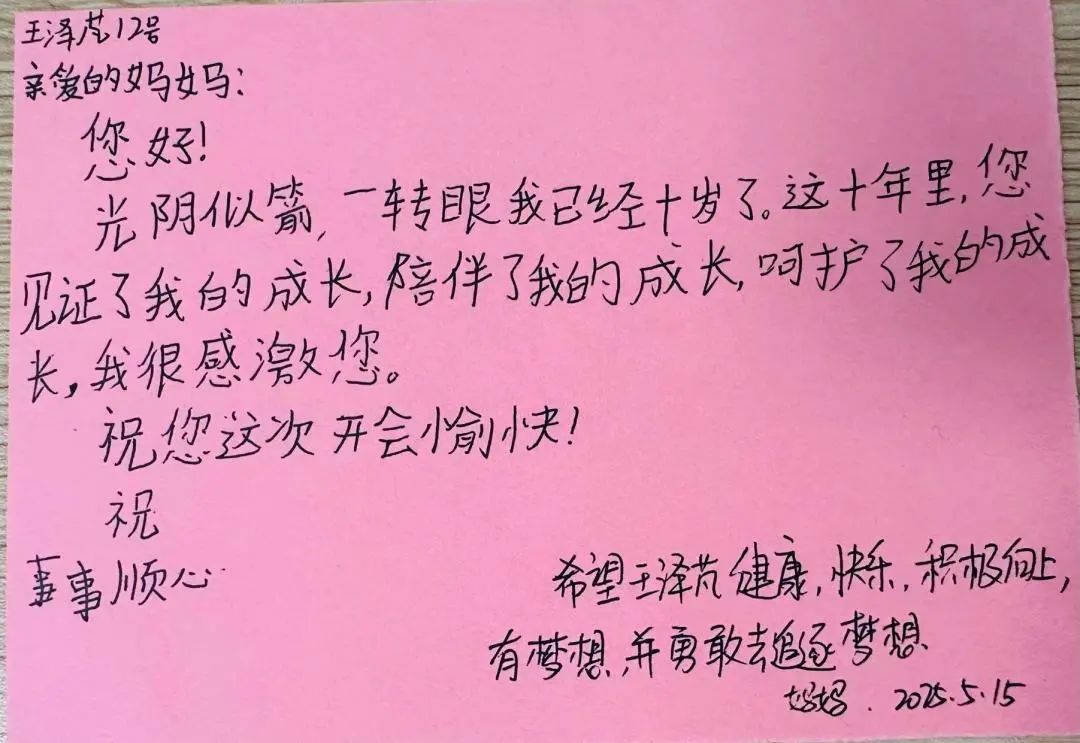 王泽芃12号
亲爱的妈妈:
您好!
光阴似箭,一转眼我已经十岁了。这十年里,您
见证了我的成长,陪伴了我的成长,呵护了我的成
长,我很感激您。
祝您这次开会愉快!
祝
事事顺心
希望王泽芃健康,快乐,积极向上,
有梦想,并勇敢去追逐梦想
妈妈.2025.5.15